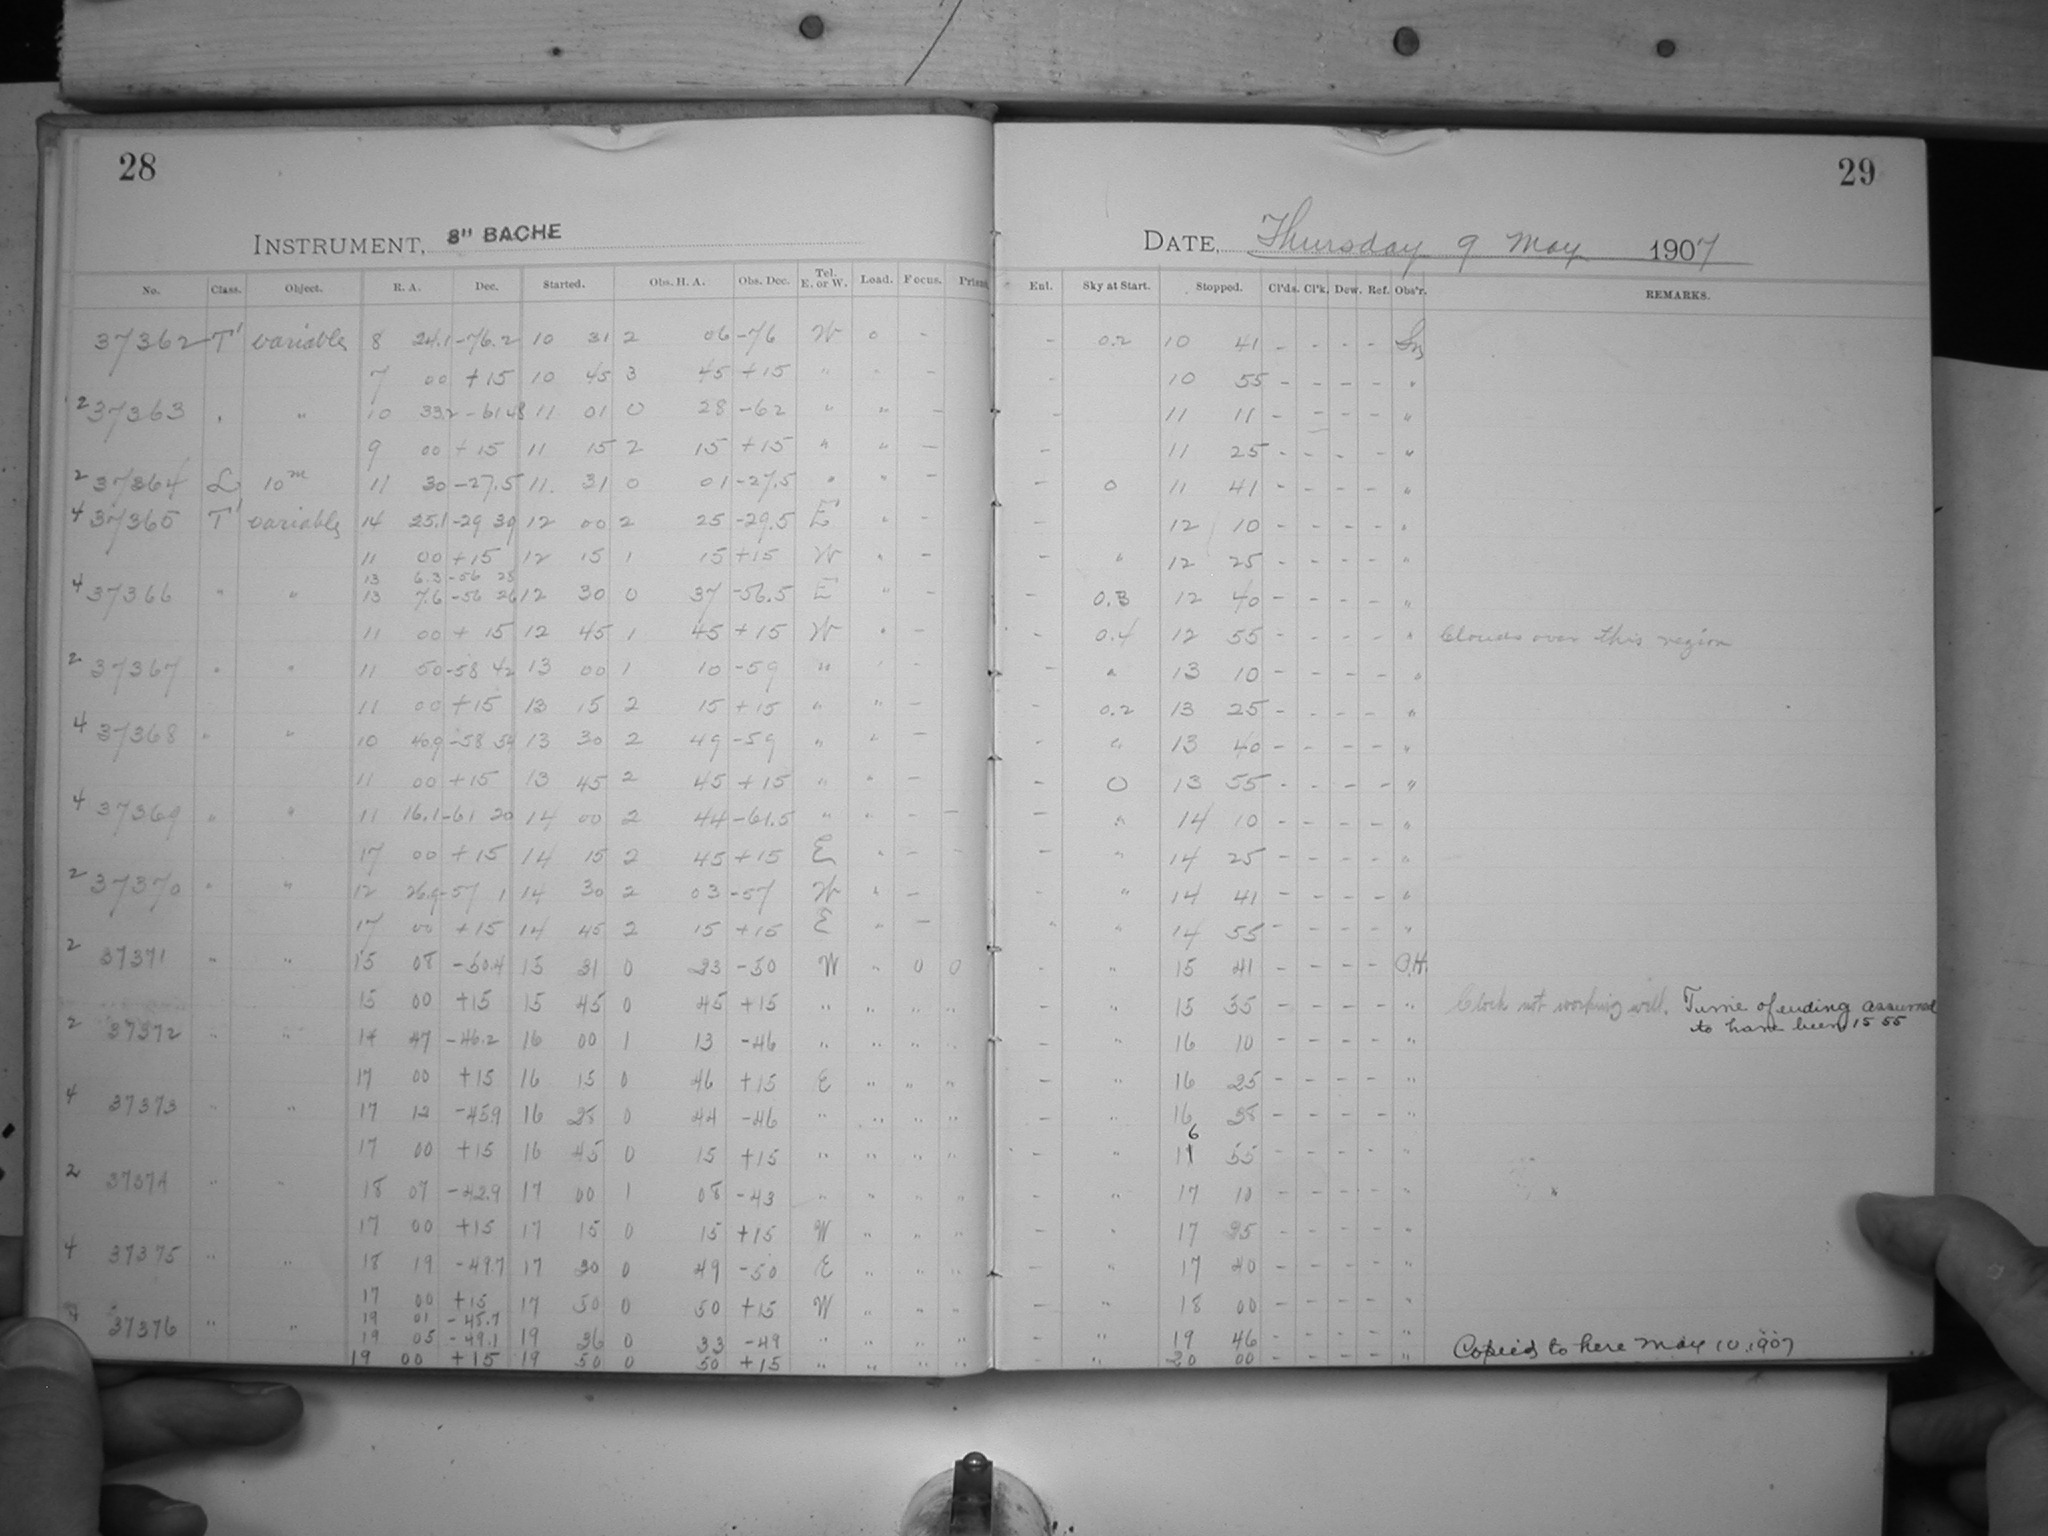 28
29
INSTRUMENT, 8" BACHE
DATE, Thursday 9 May 1907
No. Class. Object. R. A. Dec. Started. Obs. H. A. Obs. Dec. Tel. E. or W. Load. Focus. Enl. Sky at Start. Stopped. Cl'ds. Cl'k. Dew. Ref. Obs'r. REMARKS.
37362 T' variable 8 24.1 -76.2 10 31 2 06 -76 W 0 - - 0.2 10 41 - - - -
7 00 +15 10 45 3 45 +15 " " - - 10 55 - - - - "
2 37363 " " 10 33.2 -61 48 11 01 0 28 -62 " " - - 11 11 - - - - "
9 00 +15 11 15 2 15 +15 " " - - 11 25 - - - - "
2 37364 L 10m 11 30 -27.5 11 31 0 01 -27.5 " " - - 0 11 41 - - - - "
4 37365 T' variable 14 25.1 -29 39 12 00 2 25 -29.5 E " - - 12 10 - - - - "
11 00 +15 12 15 1 15 +15 W " - - " 12 25 - - - - "
13 6.3 -56 25
4 37366 " " 13 7.6 -56 26 12 30 0 37 -56.5 E " - - 0.3 12 40 - - - - "
11 00 +15 12 45 1 45 +15 W " - - 0.4 12 55 - - - - " Clouds over this region
2 37367 " " 11 50 -58 42 13 00 1 10 -59 " " - - " 13 10 - - - - "
11 00 +15 13 15 2 15 +15 " " - - 0.2 13 25 - - - - "
4 37368 " " 10 40.9 -58 54 13 30 2 49 -59 " " - - " 13 40 - - - - "
11 00 +15 13 45 2 45 +15 " " - - 0 13 55 - - - - "
4 37369 " " 11 16.1 -61 20 14 00 2 44 -61.5 " " - - - " 14 10 - - - - "
17 00 +15 14 15 2 45 +15 E " - - - " 14 25 - - - - "
2 37370 " " 12 26.9 -57 1 14 30 2 03 -57 W " - - " 14 41 - - - - "
17 00 +15 14 45 2 15 +15 E " - " " 14 55 - - - - "
2 37371 " " 15 08 -50.4 15 31 0 23 -50 W " 0 0 - " 15 41 - - - - O.H.
15 00 +15 15 45 0 45 +15 " " " " - " 15 55 - - - - " Clock not working well. Time of ending assumed
to have been 15 55
2 37372 " " 14 47 -46.2 16 00 1 13 -46 " " " " - " 16 10 - - - - "
17 00 +15 16 15 0 46 +15 E " " " - " 16 25 - - - - "
4 37373 " " 17 12 -45.9 16 28 0 44 -46 " " " " - " 16 38 - - - - "
6
17 00 +15 16 45 0 15 +15 " " " " - " 11 55 - - - - "
2 37374 " " 18 07 -42.9 17 00 1 08 -43 " " " " - " 17 10 - - - - "
17 00 +15 17 15 0 15 +15 W " " " - " 17 25 - - - - "
4 37375 " " 18 19 -49.7 17 30 0 49 -50 E " " " - " 17 40 - - - - "
17 00 +15 17 50 0 50 +15 W " " " - " 18 00 - - - - "
19 01 -45.7
37376 " " 19 05 -49.1 19 36 0 33 -49 " " " " - " 19 46 - - - - " Copied to here May 10, 1907
19 00 +15 19 50 0 50 +15 " " " " - " 20 00 - - - - "